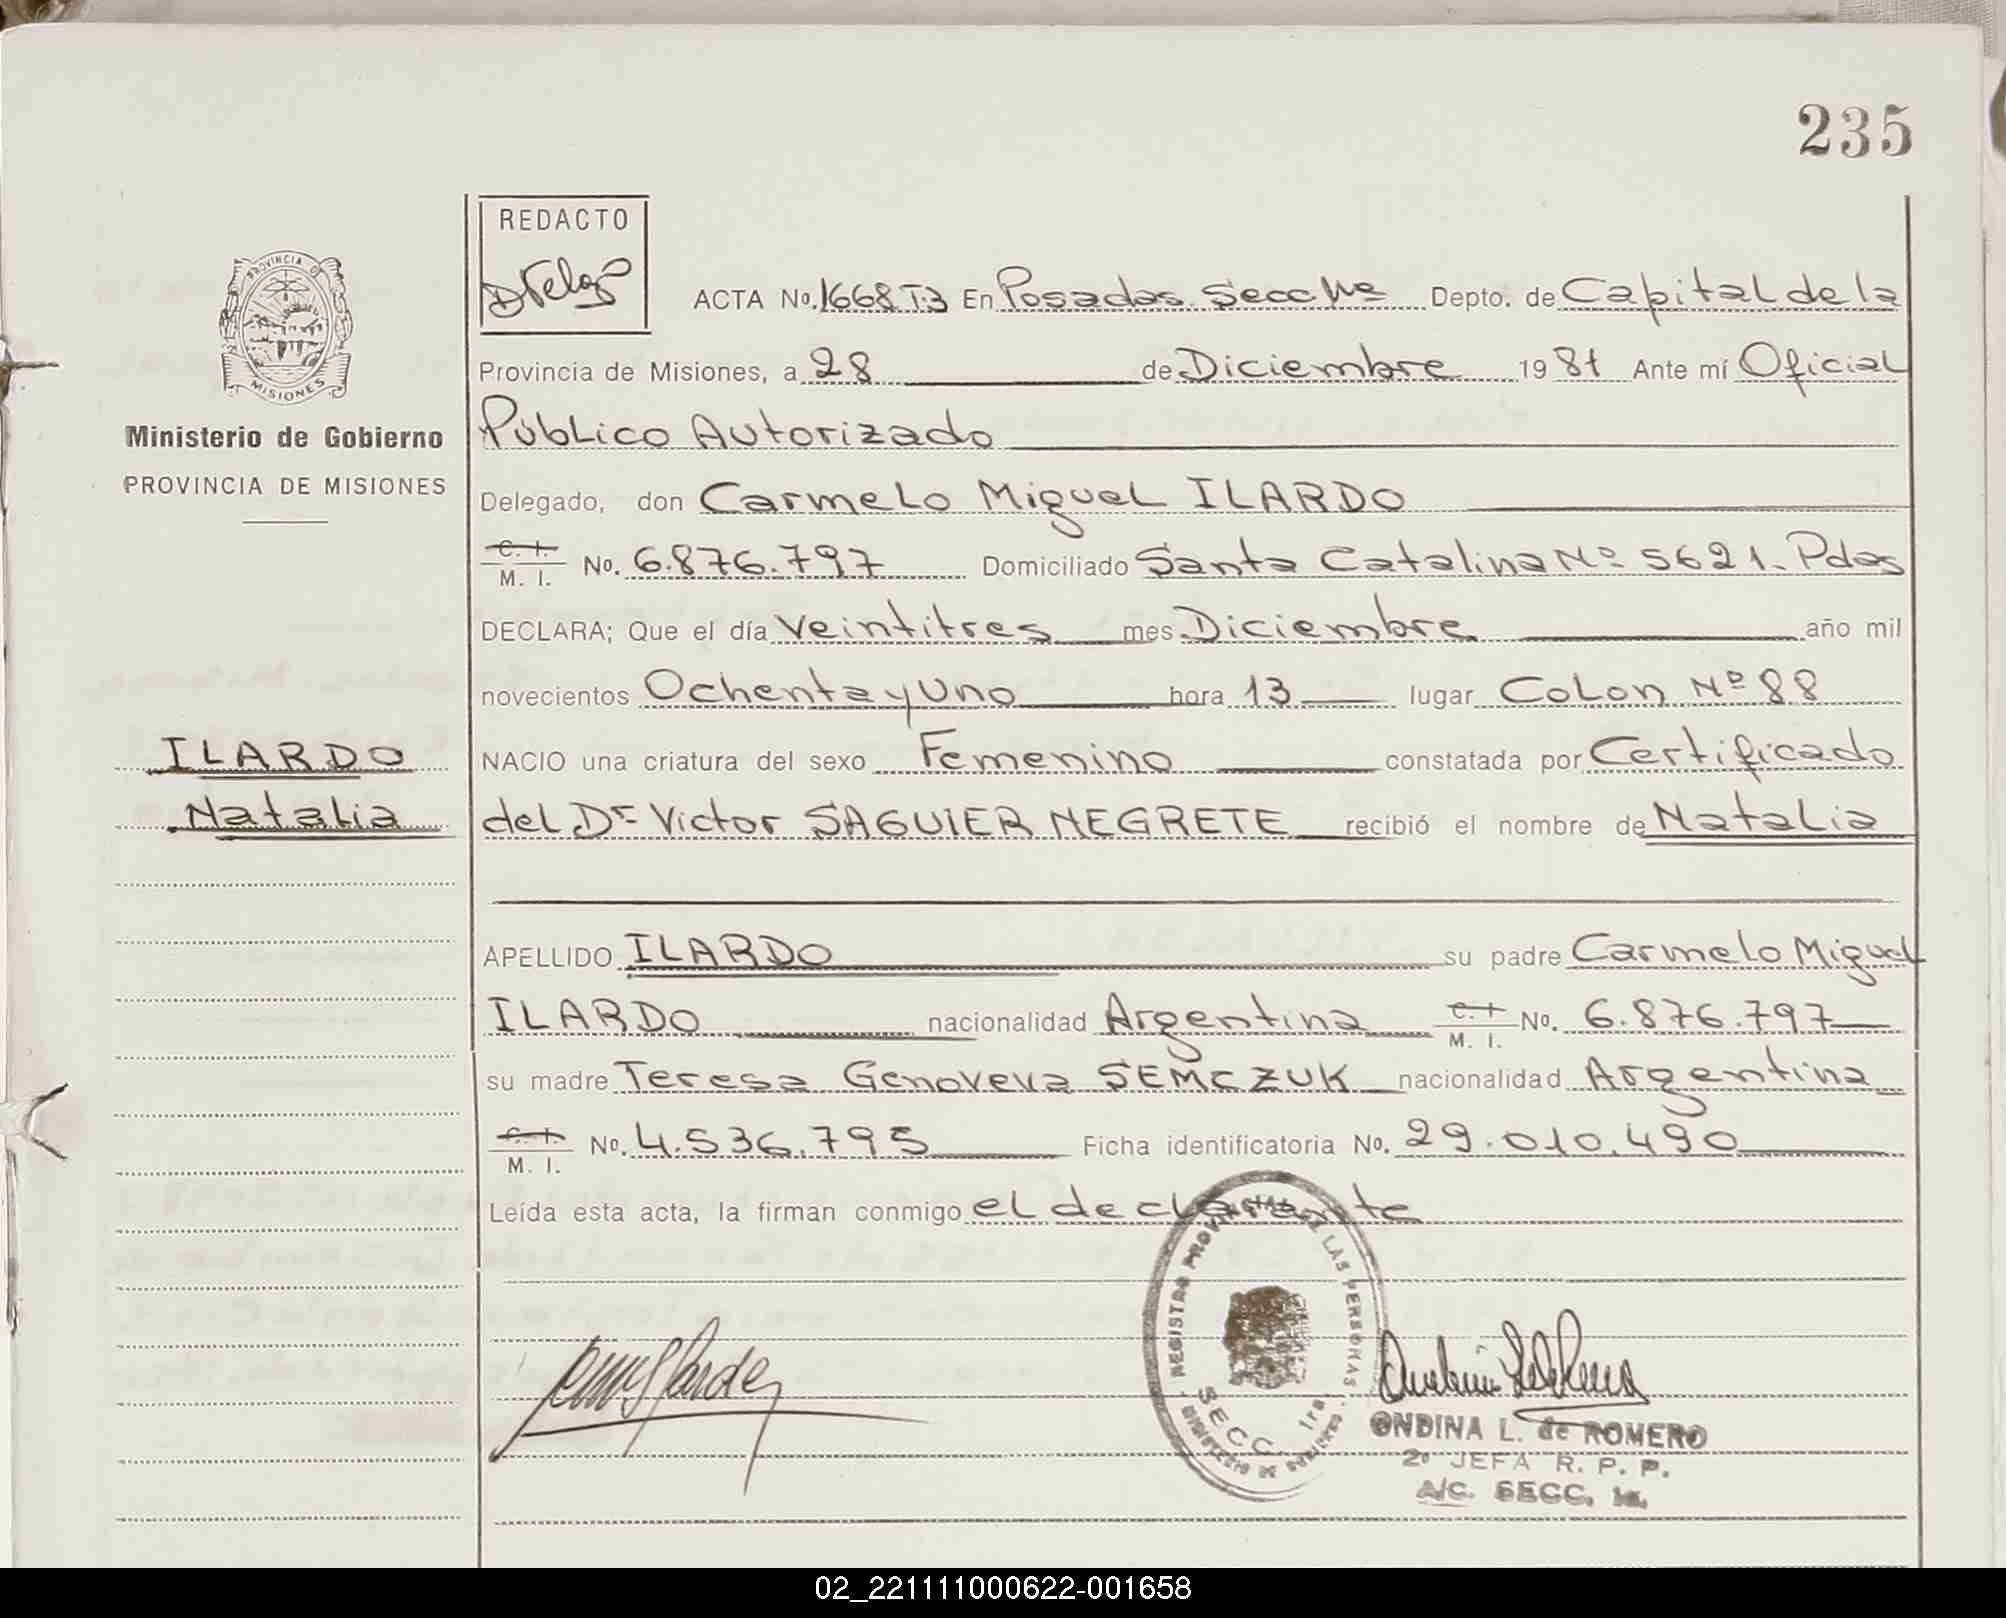 235
REDACTO
PROVINCIA DE MISIONES
ACTA No. 1668 T:3 En Posadas. Secc. 1ra Depto. de Capital de la
Provincia de Misiones, a 28 de Diciembre 1981 Ante mí Oficial
Ministerio de Gobierno
Público Autorizado
PROVINCIA DE MISIONES
Delegado, don Carmelo Miguel ILARDO
C. I. M. I. No. 6.876.797 Domiciliado Santa Catalina Nº 5621. Pdas
DECLARA; Que el día veintitres mes Diciembre año mil
novecientos Ochenta y Uno hora 13 lugar Colon Nº 88
ILARDO
NACIO una criatura del sexo Femenino constatada por Certificado
Natalia
del Dr Victor SAGUIER NEGRETE recibió el nombre de Natalia
APELLIDO ILARDO su padre Carmelo Miguel
ILARDO nacionalidad Argentina C. I. M. I. No. 6.876.797
su madre Teresa Genoveva SEMCZUK nacionalidad Argentina
C. I. M. I. No. 4.536.795 Ficha identificatoria No. 29.010.490
Leída esta acta, la firman conmigo el declarante
REGISTRO PROVINCIAL DE LAS PERSONAS
SECC. 1ra.
MINISTERIO DE GOBIERNO
ONDINA L. de ROMERO
2º JEFA R. P. P.
A/C. SECC. 1a.
02_221111000622-001658